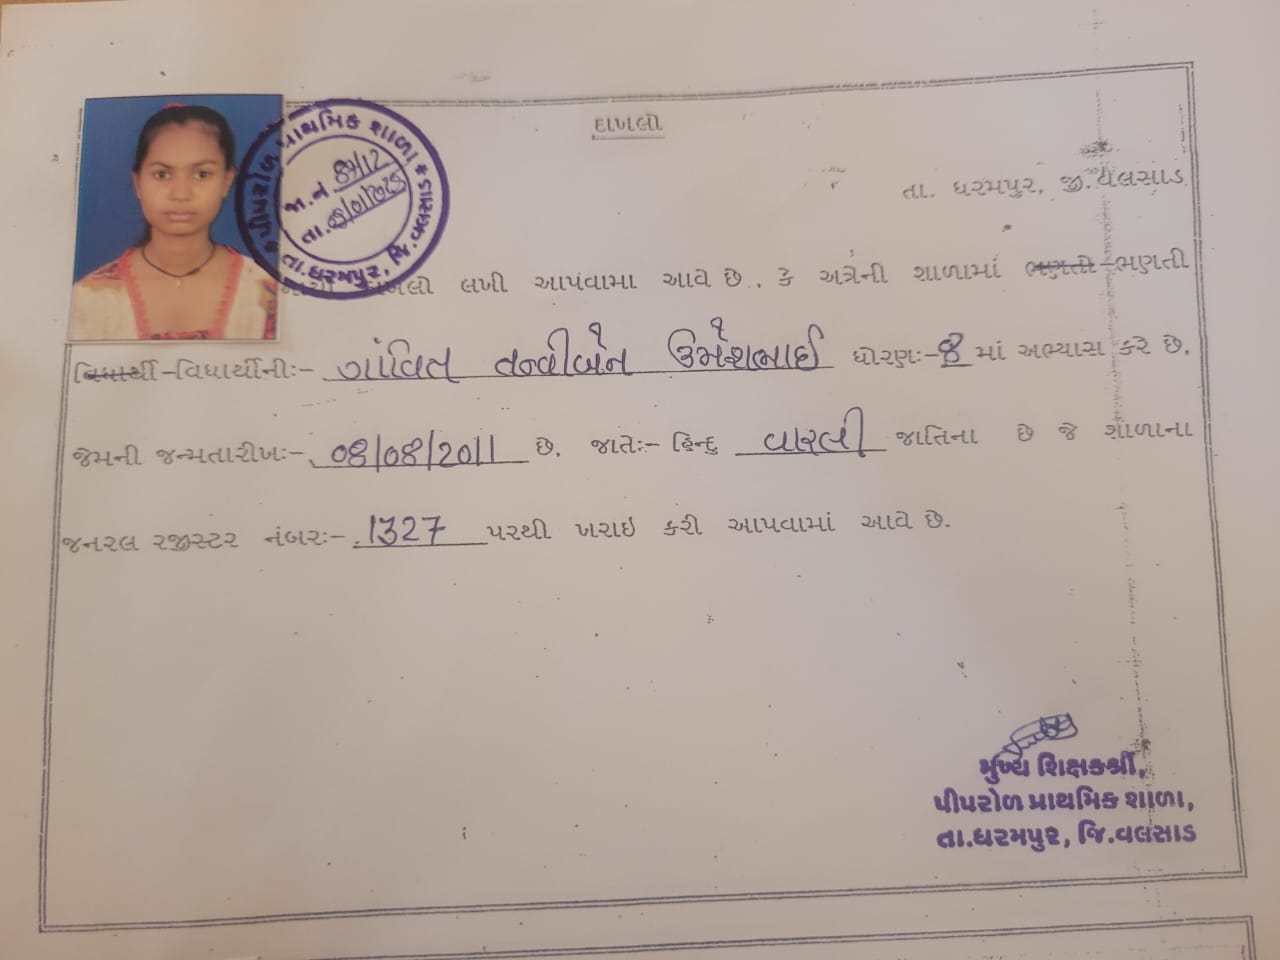 દાખલો
પીપરોળ પ્રાથમિક શાળા
જા.નં 87/12
તા.
તા.ધરમપુર, જિ.વલસાડ
તા. ધરમપુર, જી. વલસાડ
લખી આપવામા આવે છે. કે અત્રેની શાળામાં ભણતો-ભણતી
વિધાર્થી-વિધાર્થીનીઃ- ગાંવિત તન્વીબેન ઉમેશભાઈ ધોરણઃ-૪ માં અભ્યાસ કરે છે.
જેમની જન્મતારીખઃ- 08/08/2011 છે. જાતેઃ- હિન્દુ વારલી જાતિના છે જે શાળાના
જનરલ રજીસ્ટર નંબરઃ- 1327 પરથી ખરાઇ કરી આપવામાં આવે છે.
મુખ્ય શિક્ષકશ્રી,
પીપરોળ પ્રાથમિક શાળા,
તા.ધરમપુર, જિ.વલસાડ